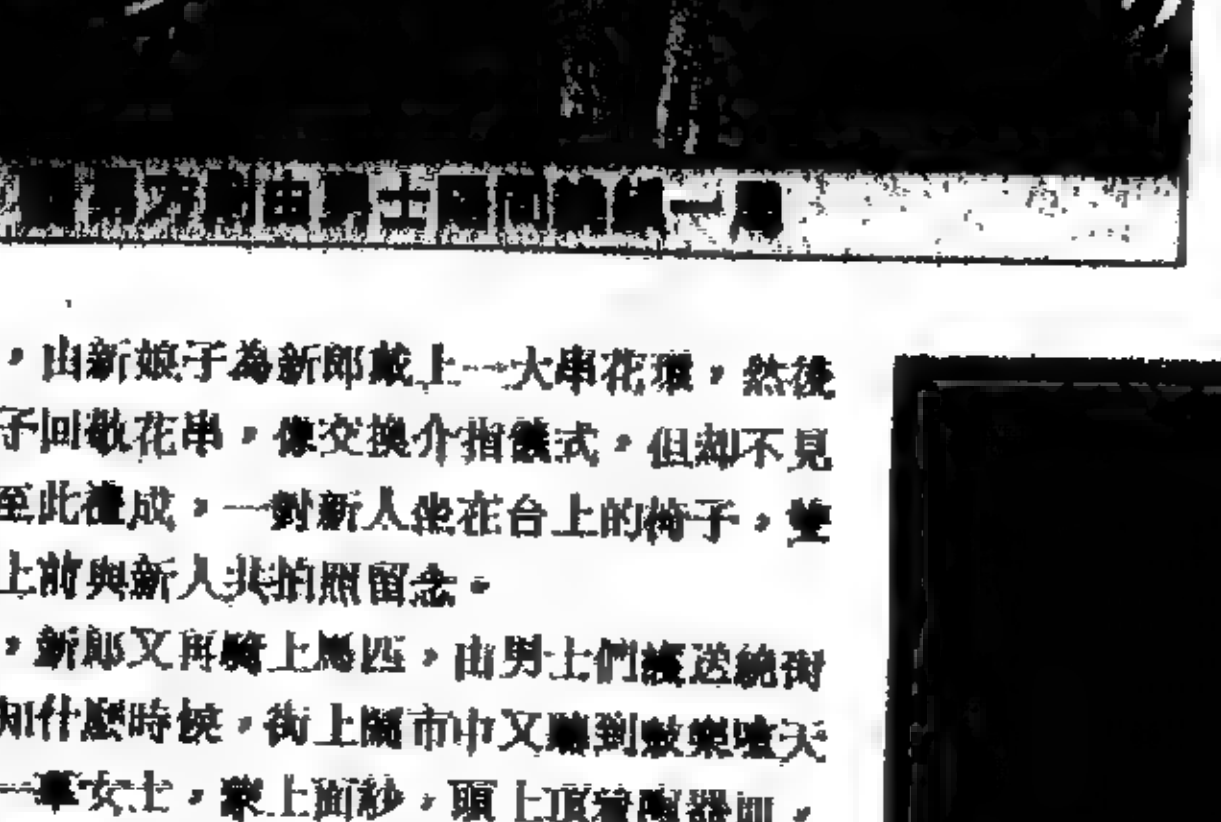 男方則由男士陪同繞鎮一周
，由新娘子為新郎戴上一大串花環，然後
子回敬花串，像交換介指儀式，但却不見
至此禮成，一對新人坐在台上的椅子，雙
上前與新人共拍照留念。
，新郎又再騎上馬匹，由男士們護送繞街
知什麼時候，街上鬧市中又聽到鼓樂喧天
一羣女士，蒙上面紗，頭上頂着陶器皿，